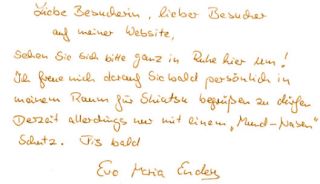 Liebe Besucherin, lieber Besucher
auf meiner Website,
sehen Sie sich bitte ganz in Ruhe hier um!
Ich freue mich darauf Sie bald persönlich in
meinem Raum für Shiatsu begrüßen zu dürfen
Derzeit allerdings nur mit einem „Mund-Nasen"
Schutz. Bis bald
Eva Maria Enders